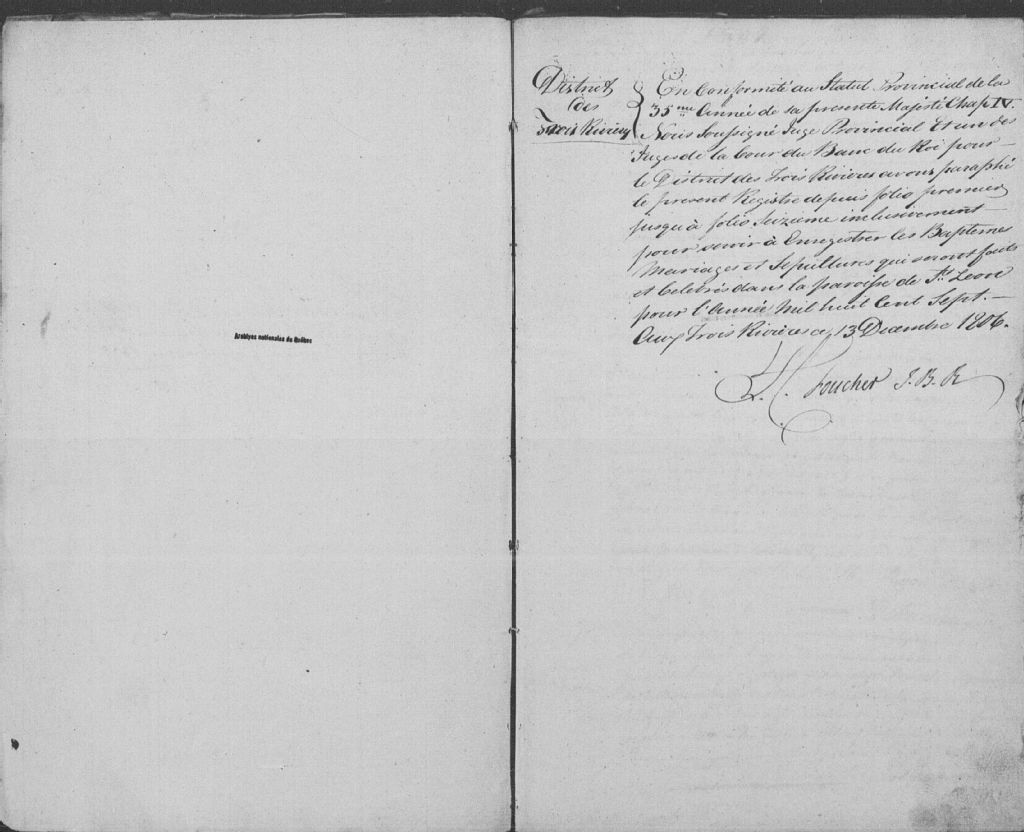 Archives nationales du Québec
District
des
Trois Rivieres
En Conformité au Statut Provincial de la
35me Année de sa presente Majesté Chap IV.
Nous Soussigné Juge Provincial Et un des
Juges de la Cour du Banc du Roi pour
le District des Trois Rivieres avons paraphé
le present Registre depuis folio premier
jusqu'à folio Seizieme inclusivement
pour servir à Enregistrer les Baptemes
Mariages et Sepultures qui seront faits
et Celebrés dans la paroisse de St. Leon
pour l'Année Mil huit Cent Sept.
Aux Trois Rivieres ce 13 Decembre 1806.
L. C. Foucher J. B. R